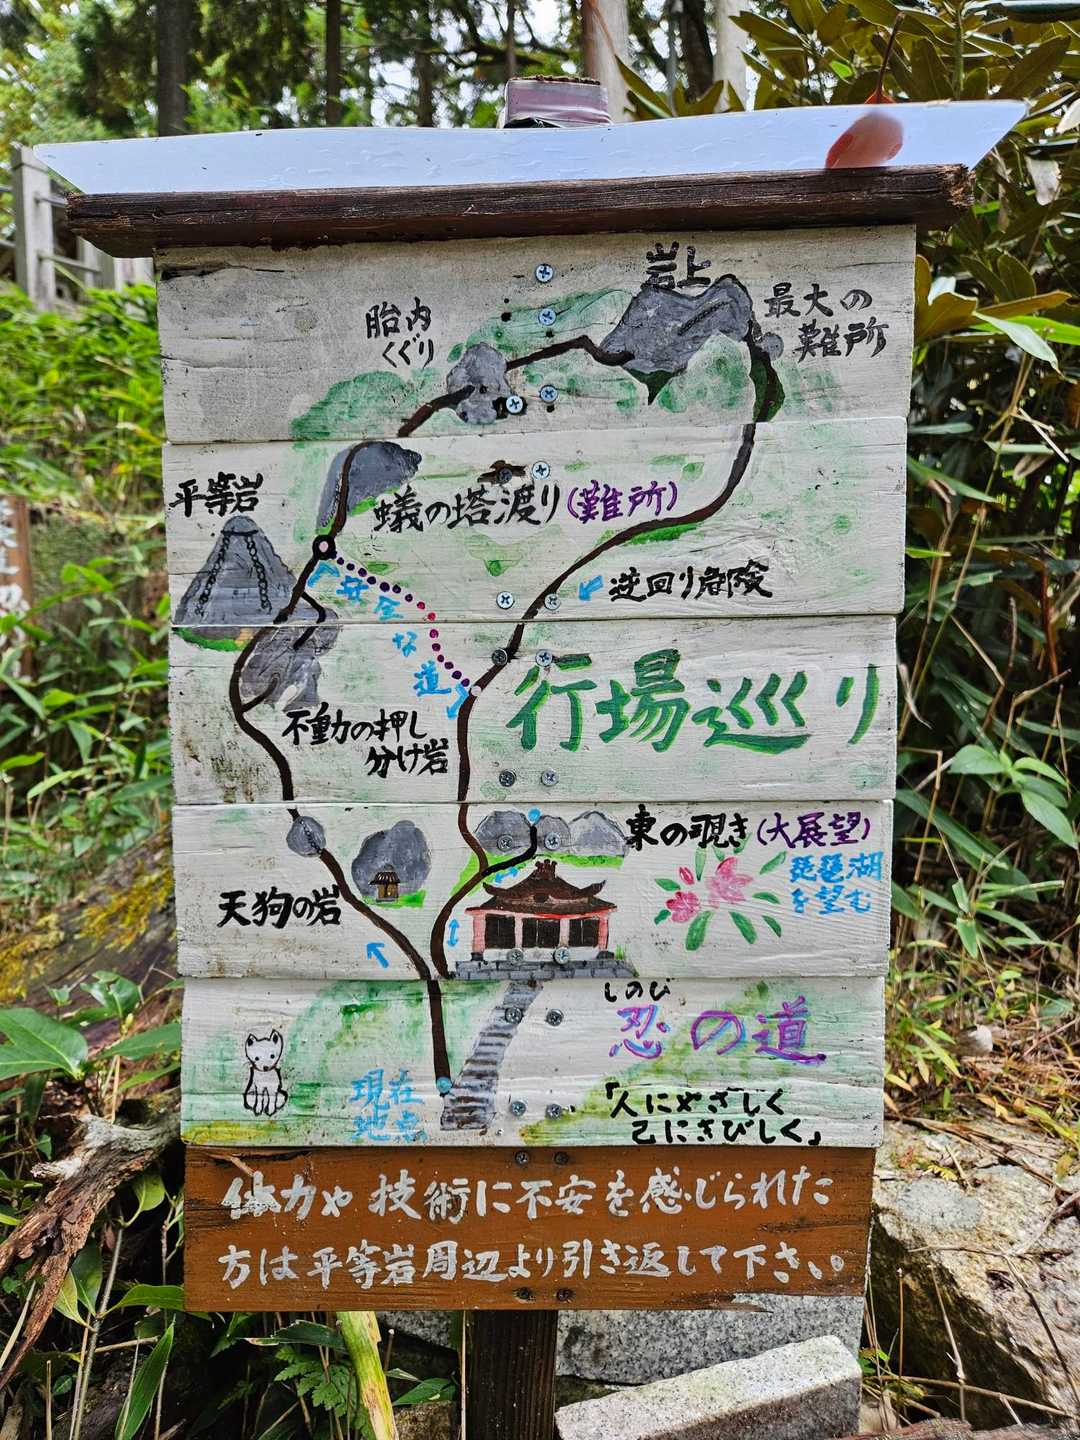 岩上
最大の
難所
胎内
くぐり
平等岩
蟻の塔渡り(難所)
逆回り危険
安全な道
行場巡り
不動の押し
分け岩
東の覗き(大展望)
琵琶湖
を望む
天狗の岩
しのび
忍の道
現在
地点
「人にやさしく
己にきびしく」
体力や技術に不安を感じられた
方は平等岩周辺より引き返して下さい。